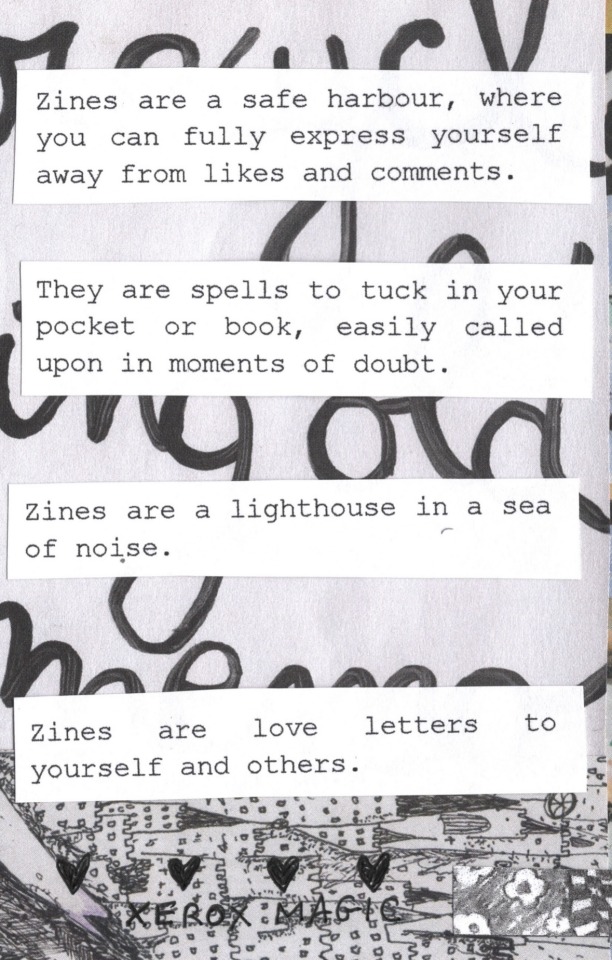 Zines are a safe harbour, where
you can fully express yourself
away from likes and comments.
They are spells to tuck in your
pocket or book, easily called
upon in moments of doubt.
ing old
Zines are a lighthouse in a sea
of noise.
Zines are love letters to
yourself and others.
XEROX MAGIC